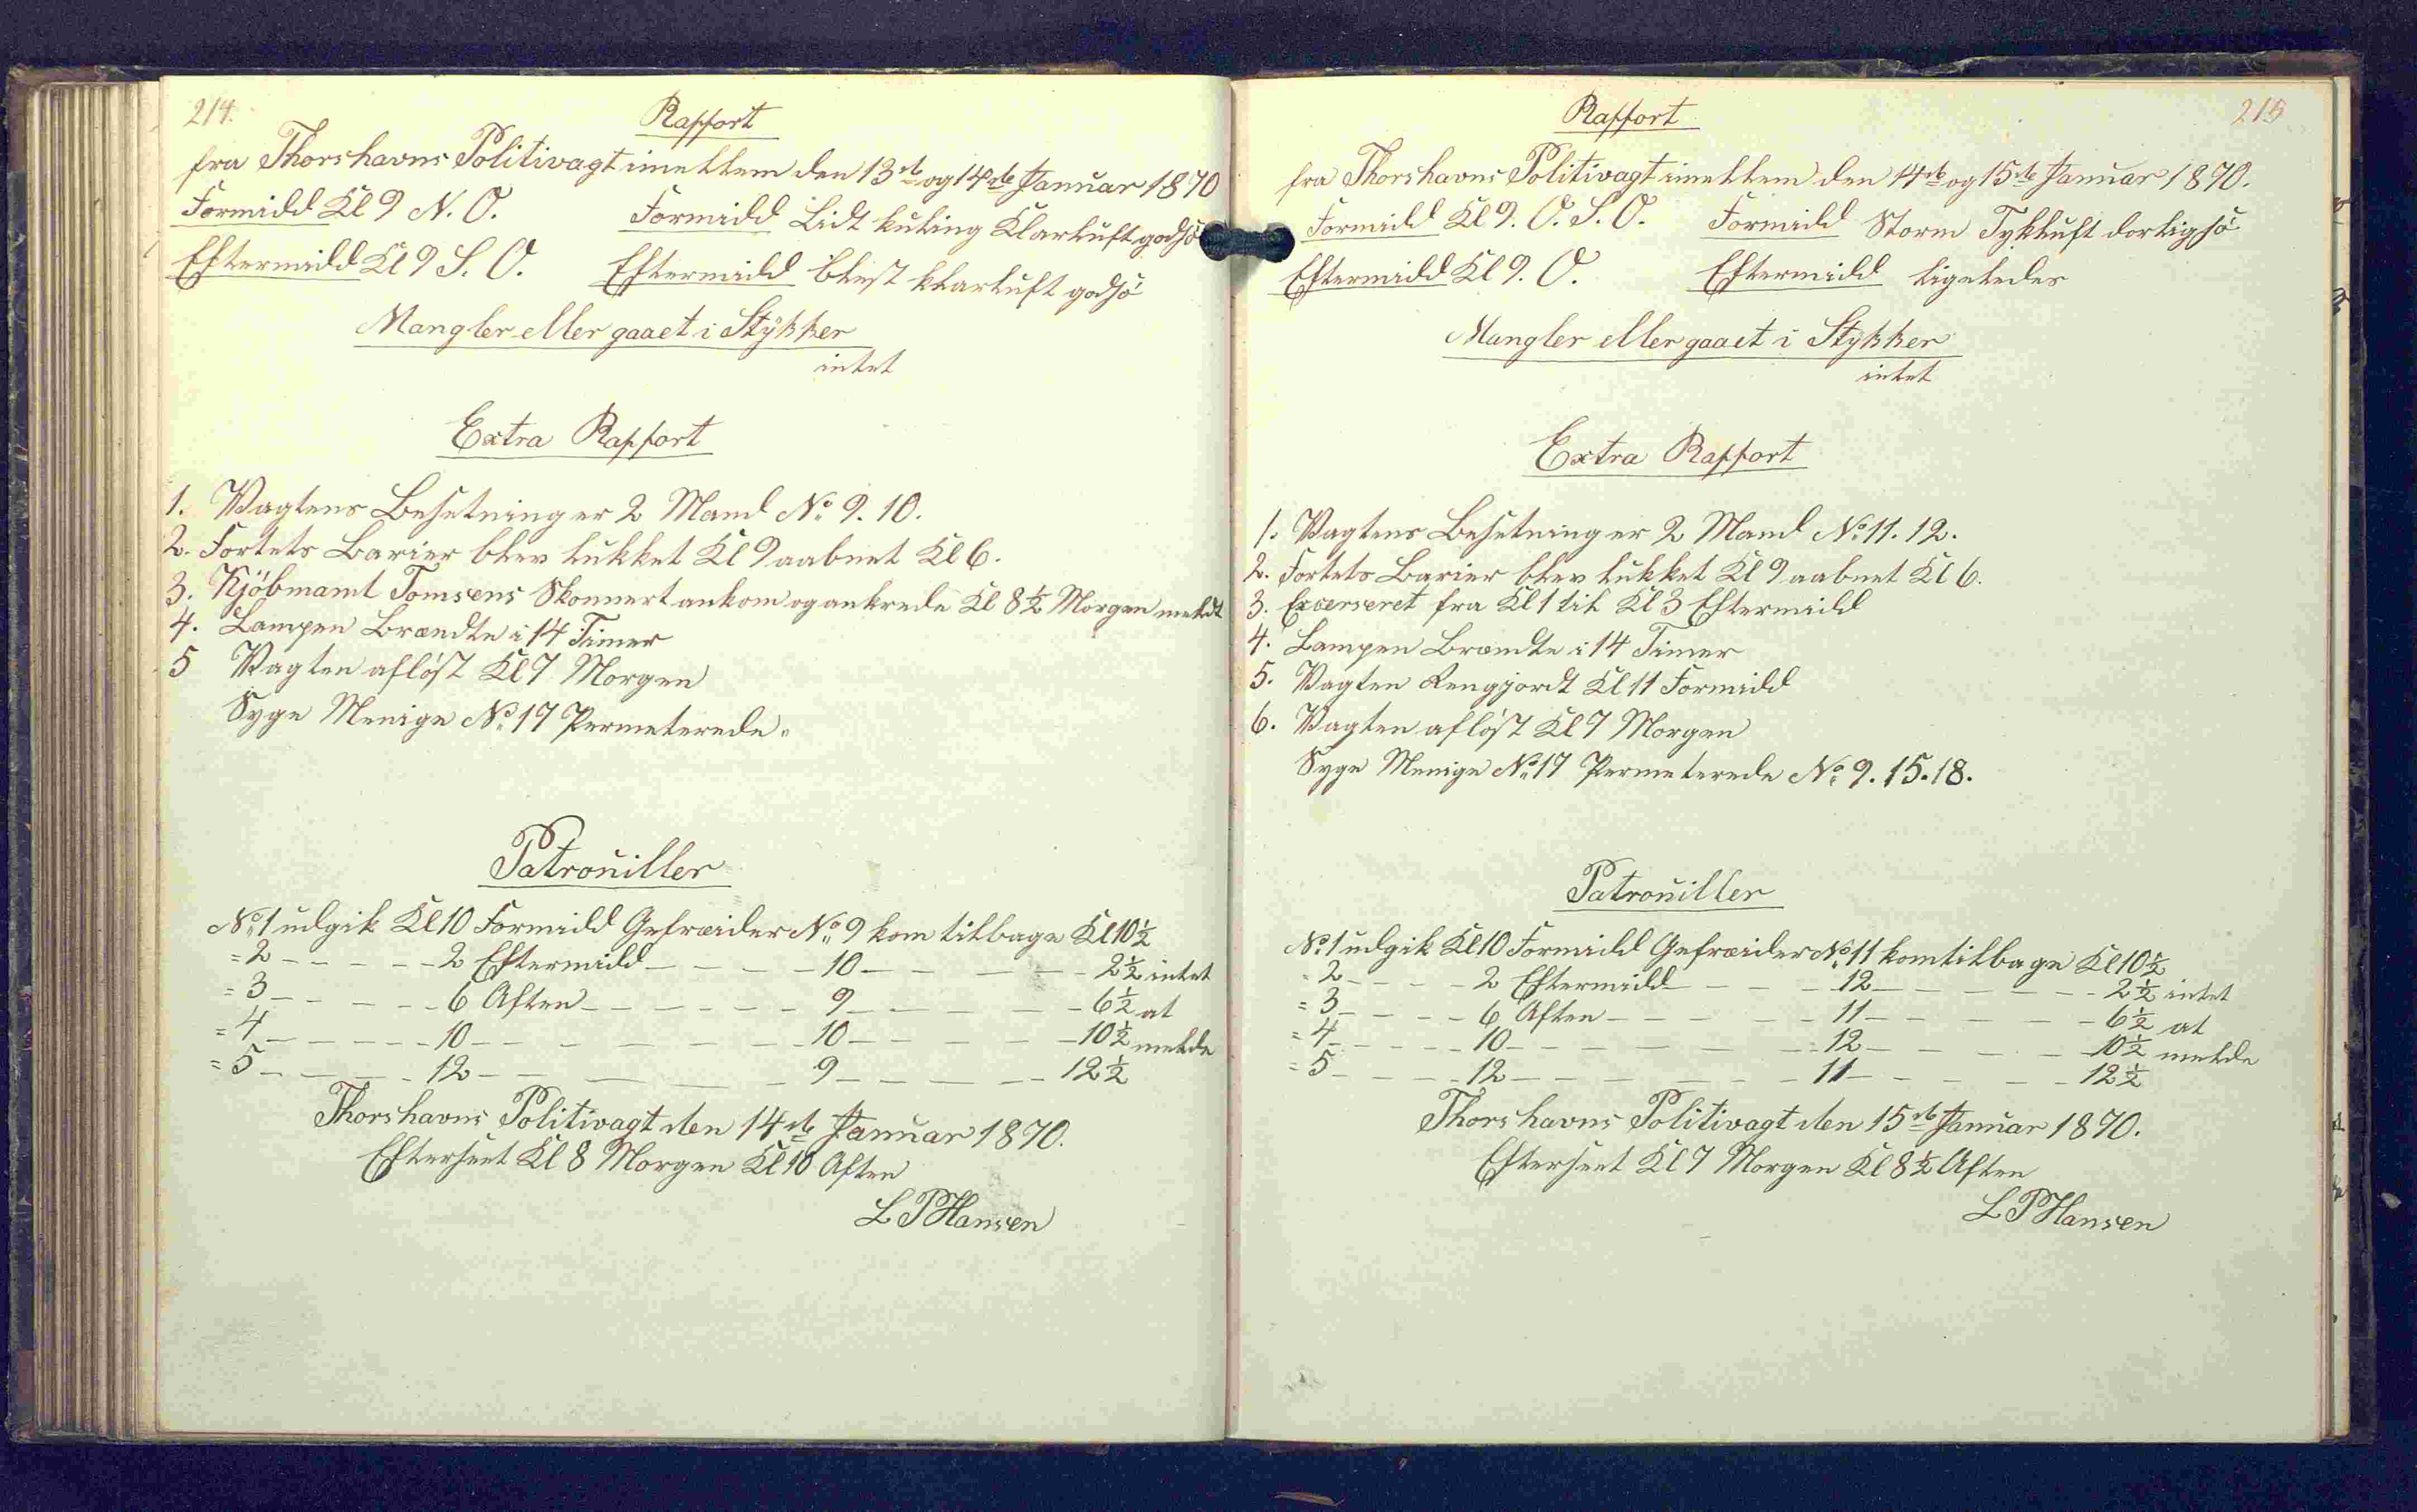 214.
Rapport
fra Thorshavns Politivagt imellem den 13de og 14de Januar 1870
Formidd Kl 9 N. O. Formidd Lidt kuling Klarluft godsö
Eftermidd Kl 9 S. O. Eftermidd blist klarluft godsö
Mangler eller gaaet i Stykker
intet
Extra Rapport
1. Vagtens Besetning er 2 Mand No 9. 10.
2. Fortets Barier blev lukket Kl 9 aabnet Kl 6.
3. Kjöbmamt Tomsens Skonnert ankom og ankrede Kl 8 1/2 Morgen meldt
4. Lampen Brændte i 14 Timer
5 Vagten aflöst Kl 7 Morgen
Syge Menige No 17 Permeterede.
Patrouiller
No 1 udgik Kl 10 Formidd Gefreider No 9 kom tilbage Kl 10 1/2
= 2 - - - - - 2 Eftermidd - - - - 10 - - - - - - 2 1/2 intet
= 3 - - - - - 6 Aften - - - - - - 9 - - - - - - 6 1/2 at
= 4 - - - - - 10 - - - - - - - 10 - - - - - - 10 1/2 melde
= 5 - - - - - 12 - - - - - - - 9 - - - - - - 12 1/2
Thorshavns Politivagt den 14de Januar 1870.
Efterseet Kl 8 Morgen Kl 10 Aften
L P Hansen
215
Rapport
fra Thorshavns Politivagt imellem den 14de og 15de Januar 1870.
Formidd Kl 9. O. S. O. Formidd Storm Tykluft dorligsö
Eftermidd Kl 9. O. Eftermidd ligeledes
Mangler eller gaaet i Stykker
intet
Extra Rapport
1. Vagtens Besetning er 2 Mand No 11. 12.
2. Fortets Barier blev lukket Kl 9 aabnet Kl 6.
3. Excerseret fra Kl 1 til Kl 3 Eftermidd
4. Lampen Brændte i 14 Timer
5. Vagten Rengjordt Kl 11 Formidd
6. Vagten aflöst Kl 7 Morgen
Syge Menige No 17 Permeterede No 9. 15. 18.
Patrouiller
No 1 udgik Kl 10 Formidd Gefreider No 11 kom tilbage Kl 10 1/2
= 2 - - - - - 2 Eftermidd - - - - 12 - - - - - - 2 1/2 intet
= 3 - - - - - 6 Aften - - - - - 11 - - - - - - 6 1/2 at
= 4 - - - - - 10 - - - - - - - 12 - - - - - - 10 1/2 melde
= 5 - - - - - 12 - - - - - - - 11 - - - - - - 12 1/2
Thorshavns Politivagt den 15de Januar 1870.
Efterseet Kl 7 Morgen Kl 8 1/2 Aften
L P Hansen